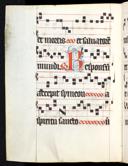 et mortis et salvatorem
mundi R Responsū
accepit symeon a
spiritu sancto